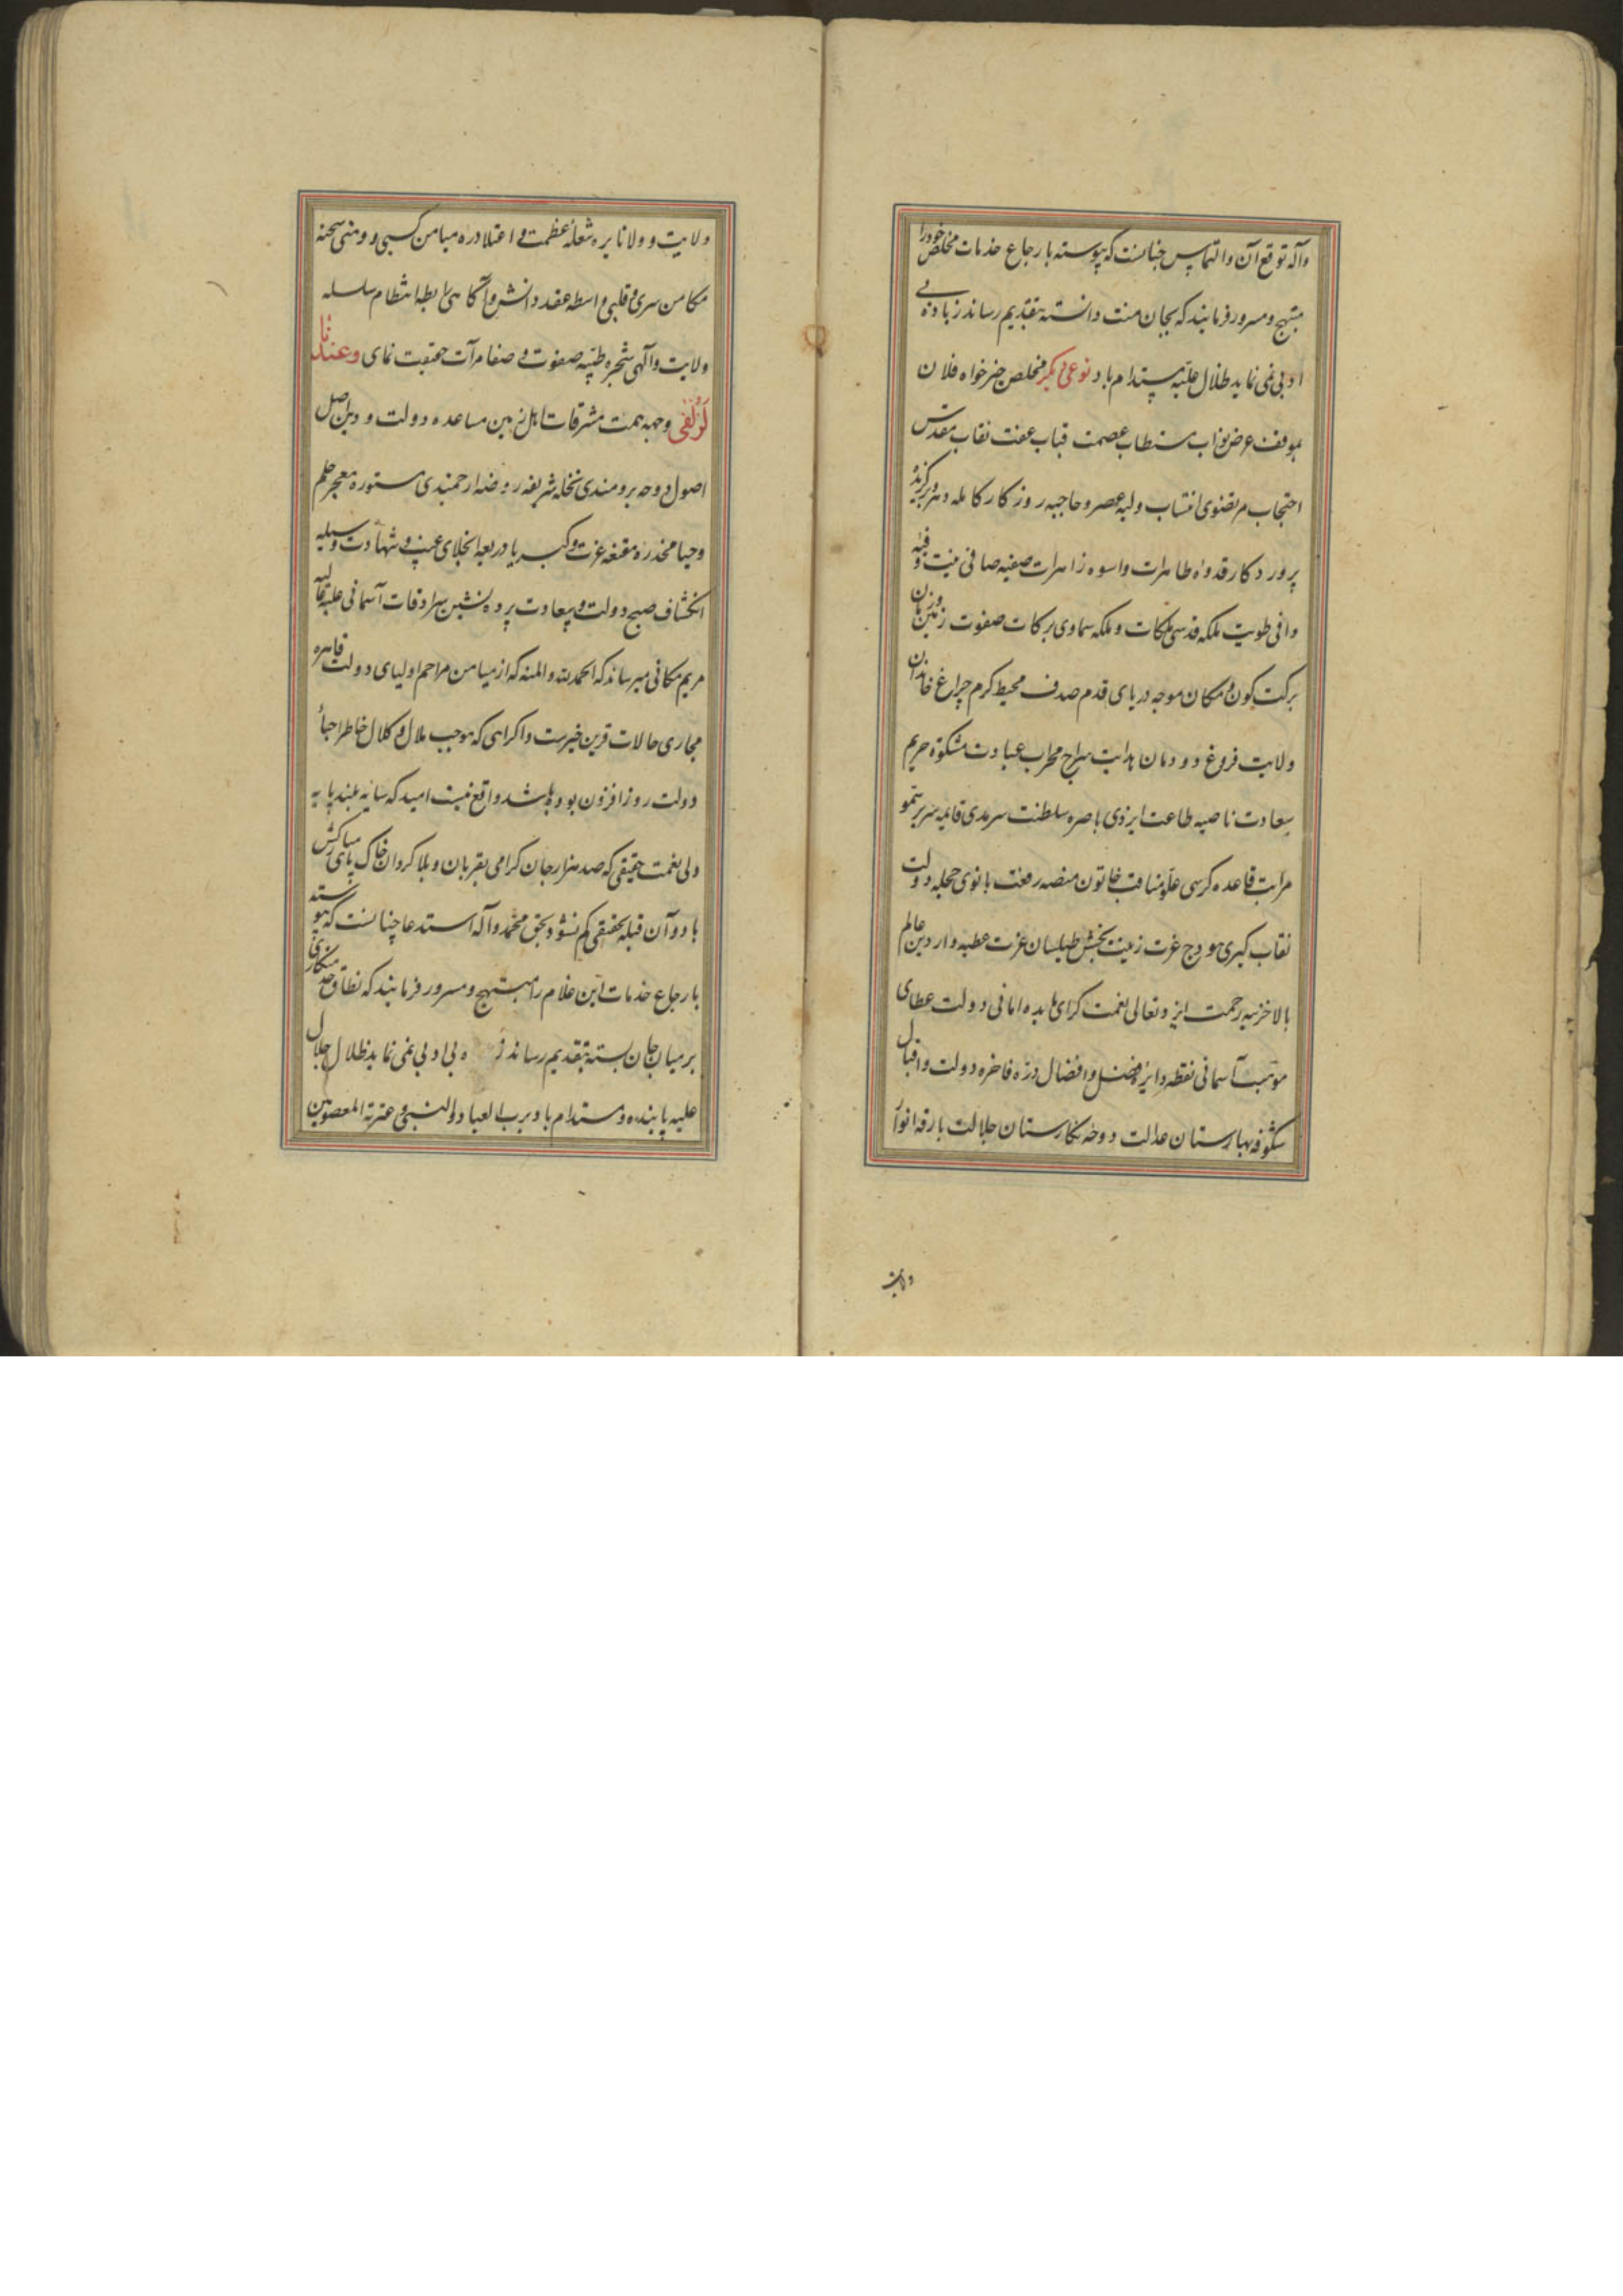 وآله توقع آن و التماس چنانست که پیوسته بارجاع خدمات مخلص خودرا
مبتهج و مسرور فرمایند که بجان منت دانسته بتقدیم رساند زیاده بی
ادبی نمی نماید ظلال علیه مستدام باد نوعی دیکر مخلص خیرخواه فلان
بموقف عرض نواب مستطاب عصمت قباب عفت نقاب مقدس
احتجاب مرتضوی انتساب ولیه عصر و حاجبه روزکار کامله دهر برکزیده
پرورد کار قدوه طاهرات و اسوه زاهرات صفیه صافی نیت وفیه
وافی طویت ملکه قدسی ملکات و ملکه سماوی برکات صفوت زمین و زمان
برکت کون و مکان موجه دریای قدم صدف محیط کرم چراغ خاندان
ولایت فروغ دودمان هدایت سراج محراب عبادت مشکوة حریم
سعادت ناصیه طاعت ایزدی باصره سلطنت سرمدی قایمه سریر سمو
مراتب قاعده کرسی علو مناقب خاتون منصه رفعت بانوی حجله دولت
نقاب کبری هودج عزت زینت بخش طیلسان عزت عطیه دار دین عالم
بالا خزینه رحمت ایزد تعالی نعمت کرای مایده امانی دولت عطای
موهبت آسمانی نقطه دایره فضل و افضال دره فاخره دولت و اقبال
شکوفه بهارستان عدالت دوحه نکارستان جلالت بارقه انوار
ولایت
ولایت و ولا نایره شعله عظمت و اعتلا دره میامن کسبی و ومنی سحنه
مکامن سری و قلبی واسطه عقد دانش و آکاهی رابطه انتظام سلسله
ولایت و آلهی شجره طیبه صفوت و صفا مرآت حقیقت نمای وعندنا
لزلفی وجهه همت مشرقات اهل زمین مساعده دولت و دین اصل
اصول دوحه برومندی نخله شریفه روضه ارجمندی مستوره معجر حلم
وحیا مخدره مقنعه عزت و کبریا ذریعه انجلای غیب و شهادت وسیله
انکشاف صبح دولت و سعادت پرده نشین سرادقات آسمانی علیه عالیه
مریم مکانی میرساند که الحمدلله والمنه که از میامن مراحم اولیای دولت قاهره
مجاری حالات قرین خیرست و اکراهی که موجب ملال و کلال خاطر احبأ
دولت روز افزون بوده باشد واقع نیست امید که سایه بلند پایه
ولی نعمت حقیقی که صد هزار جان کرامی بقربان و بلا کردان خاک پای مبارکش
باد و آن قبله حقیقی کم نشود بحق محمد و آله استدعا چنانست که پیوسته
بارجاع خدمات این غلام را مبتهج و مسرور فرمایند که نطاق خدمتکاری
بر میان جان بسته بتقدیم رساند ز ه بی ادبی نمی نماید ظلال جلال
علیه پاینده و مستدام باد برب العباد والنبی و عترته المعصومین